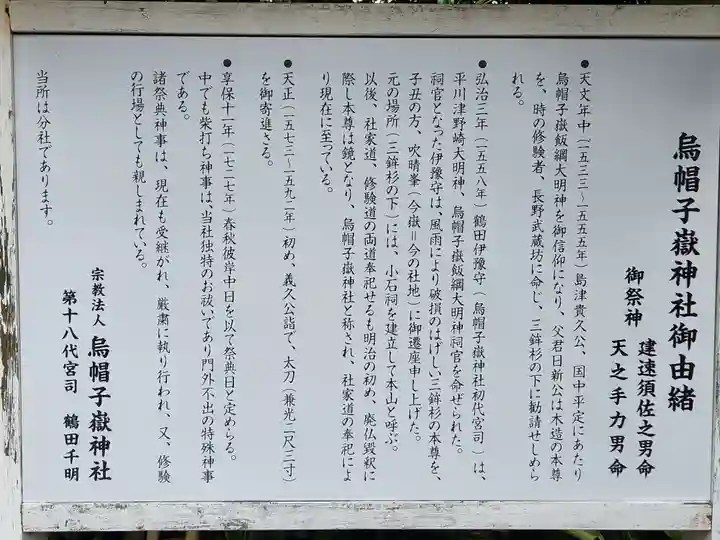 烏帽子嶽神社御由緒
御祭神　建速須佐之男命
天之手力男命
●天文年中（一五三三～一五五五年）島津貴久公、国中平定にあたり
烏帽子嶽飯綱大明神を御信仰になり、父君日新公は木造の本尊
を、時の修験者、長野武蔵坊に命じ、三鉾杉の下に勧請せしめら
れる。
●弘治三年（一五五八年）鶴田伊豫守（烏帽子嶽神社初代宮司）は、
平川津野崎大明神、烏帽子嶽飯綱大明神祠官を命ぜられた。
祠官となった伊豫守は、風雨により破損のはげしい三鉾杉の本尊を、
子丑の方、吹晴峯（今嶽＝今の社地）に御遷座申し上げた。
元の場所（三鉾杉の下）には、小石祠を建立して本山と呼ぶ。
以後、社家道、修験道の両道奉祀せるも明治の初め、廃仏毀釈に
際し本尊は鏡となり、烏帽子嶽神社と称され、社家道の奉祀によ
り現在に至っている。
●天正（一五七三～一五九二年）初め、義久公詣で、太刀（兼光二尺三寸）
を御寄進さる。
●享保十一年（一七二七年）春秋彼岸中日を以て祭典日と定めらる。
中でも柴打ち神事は、当社独特のお祓いであり門外不出の特殊神事
である。
諸祭典神事は、現在も受継がれ、厳粛に執り行われ、又、修験
の行場としても親しまれている。
宗教法人　烏帽子嶽神社
第十八代宮司　鶴田千明
当所は分社であります。